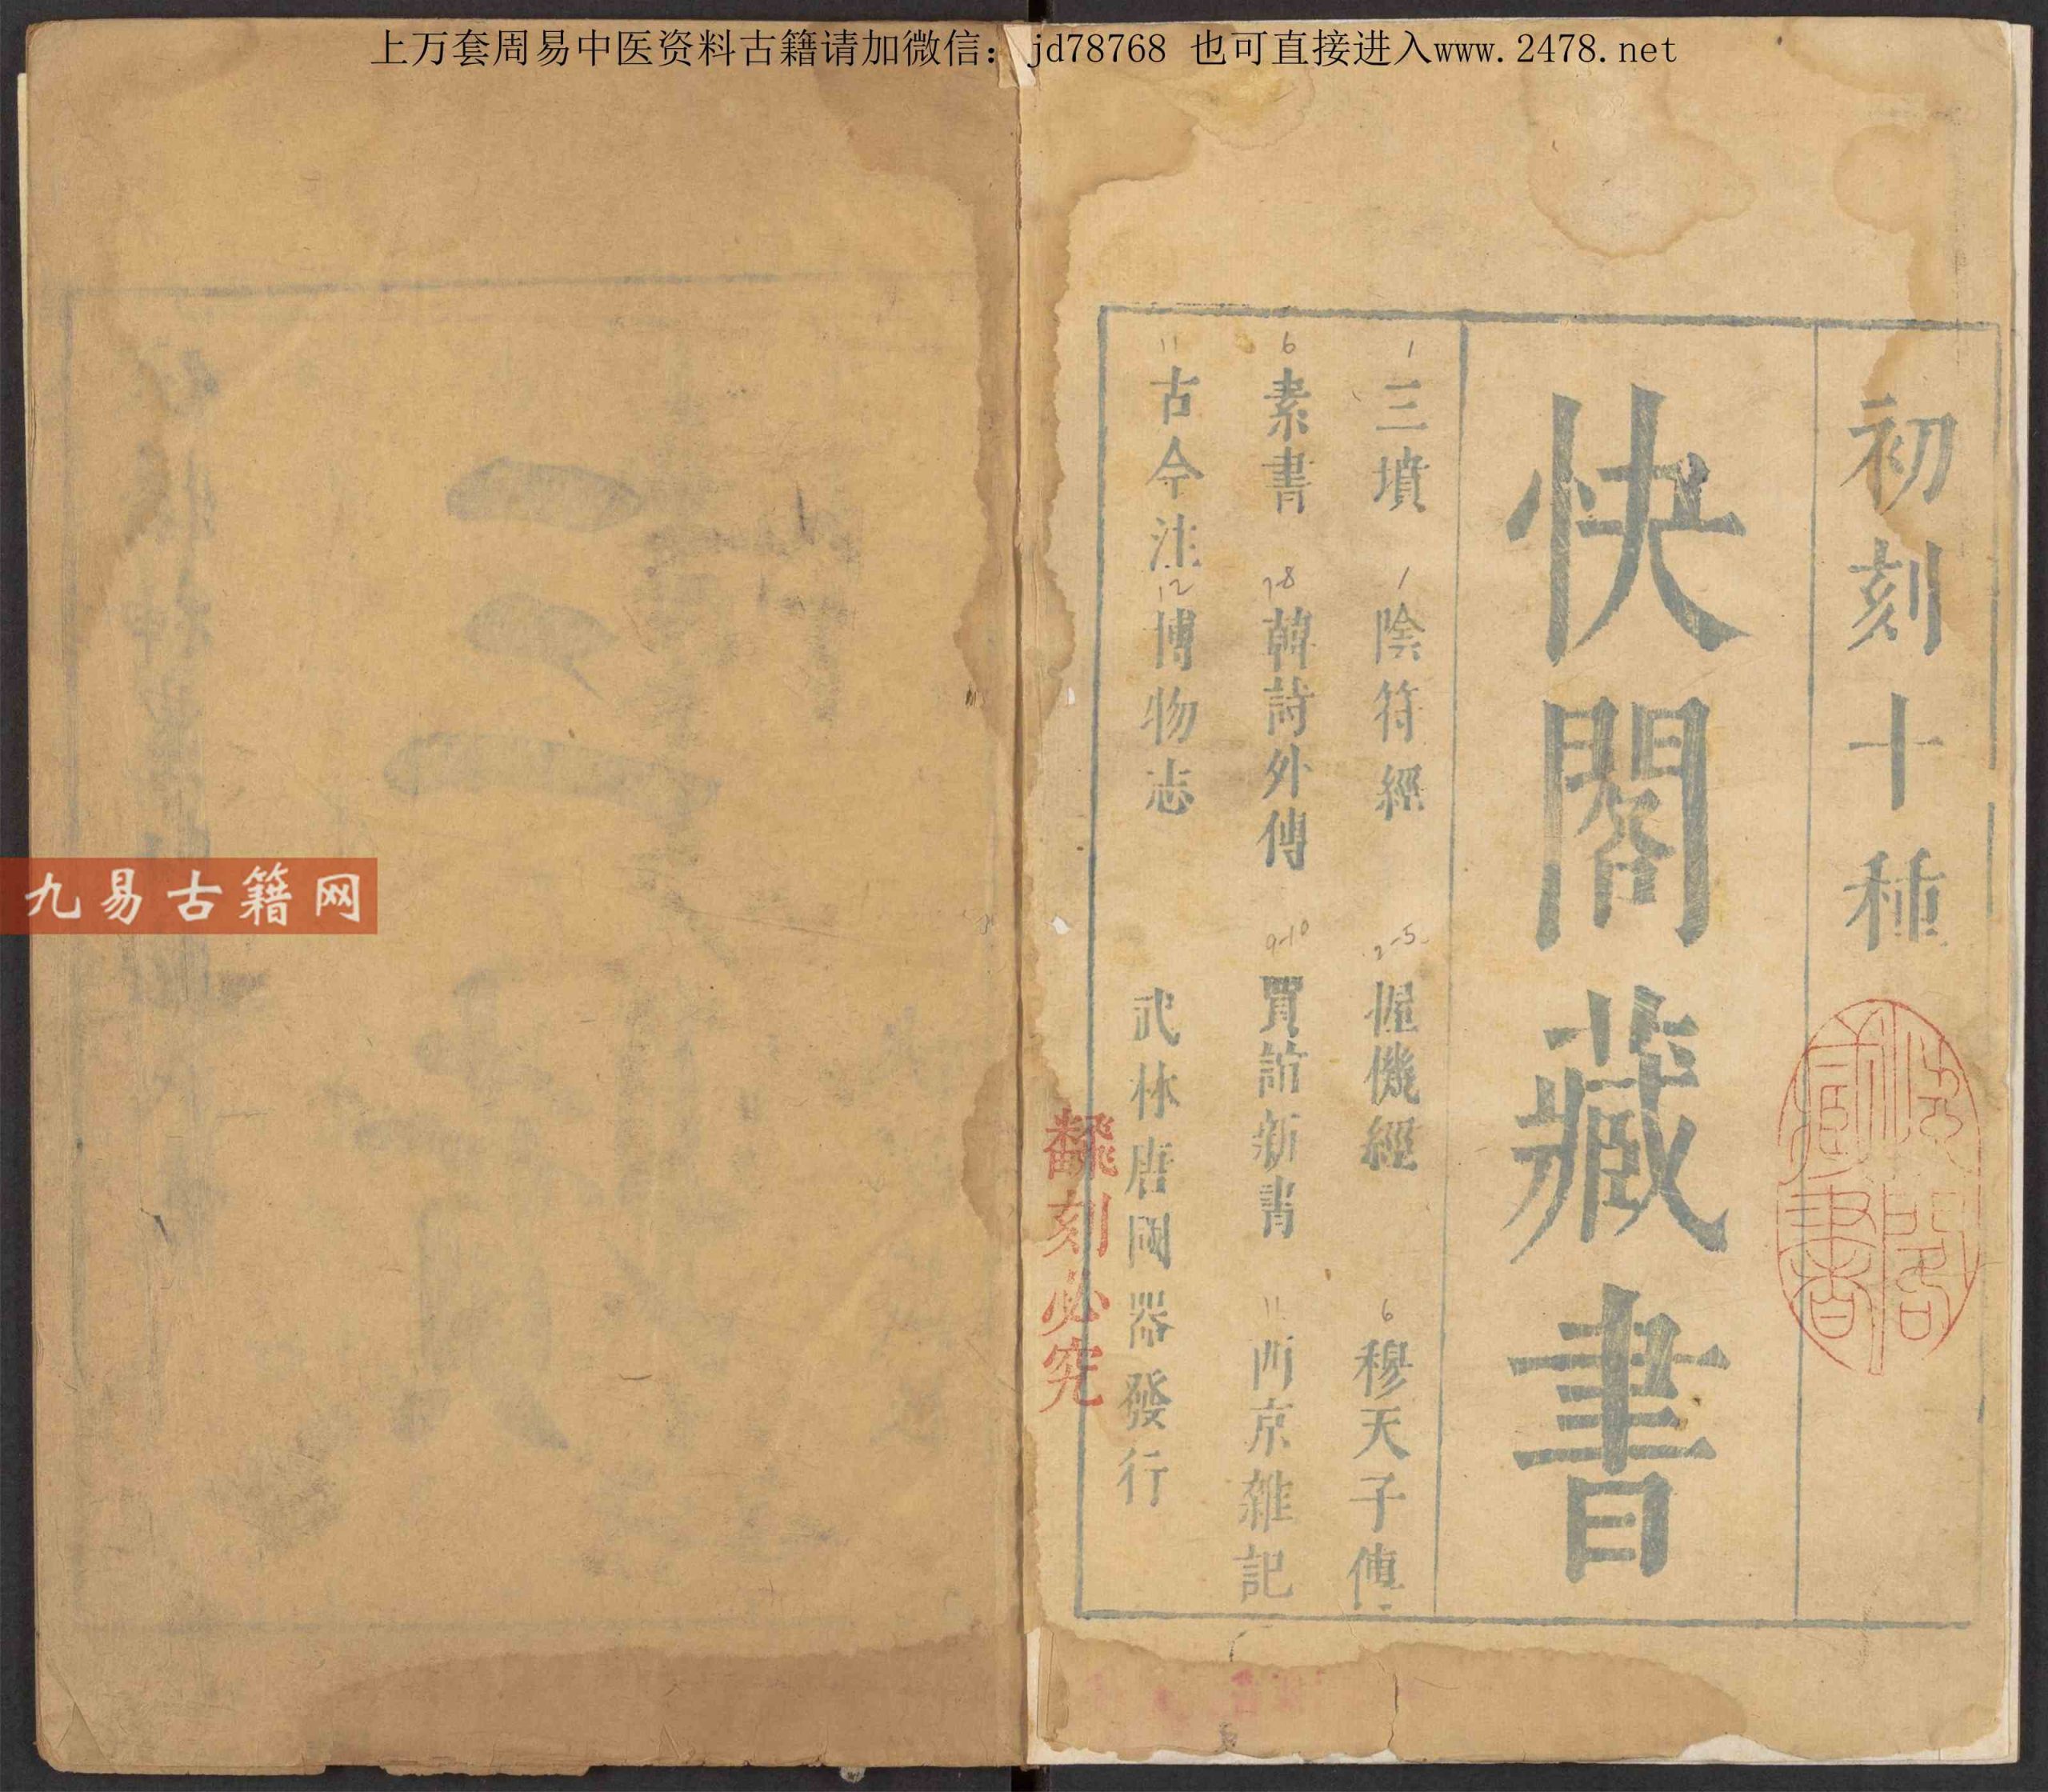 上万套周易中医资料古籍请加微信： jd78768 也可直接进入www.2478.net
初刻十種
快閣藏書
快閣藏書
1 三墳 1 陰符經 2-5 握機經 6 穆天子傳
6 素書 7-8 韓詩外傳 9-10 賈誼新書 11 西京雜記
11 古今注 12 博物志
武林唐國器發行
翻刻必究
九易古籍网